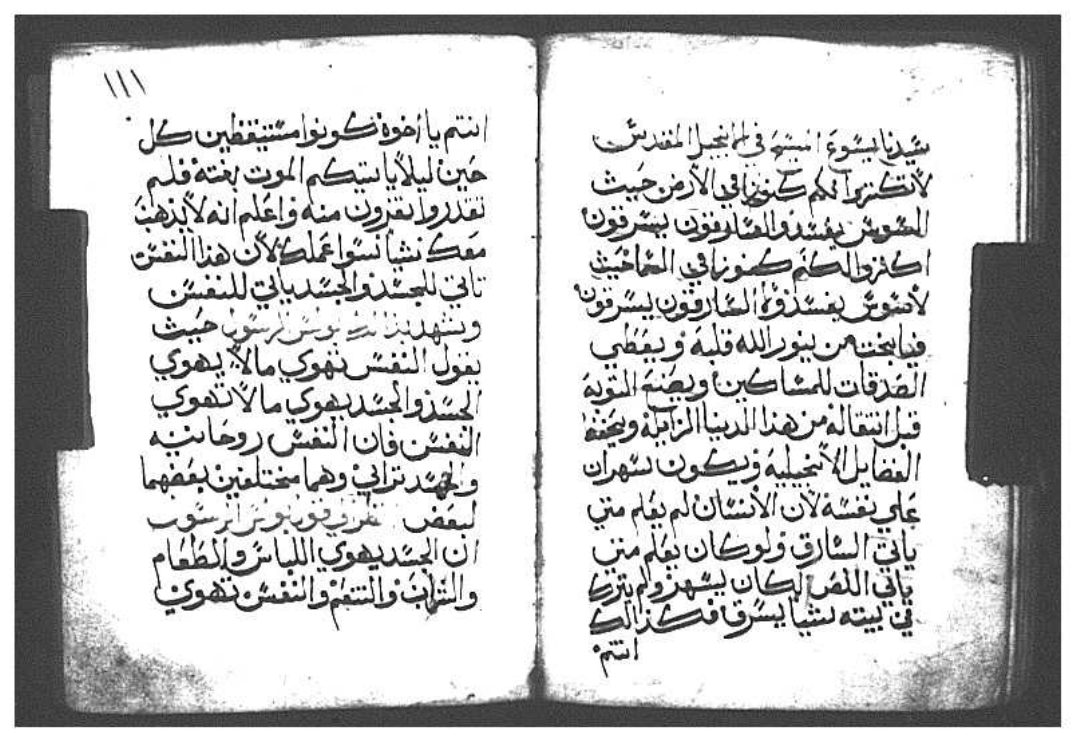 سيدنا يسوع المسيح في الانجيل المقدس
لاتكنزوا لكم كنوزا في الارض حيث
السوس يفسد والسارقون يسرقون
اكنزوا لكم كنوزا في السما حيث
لاسوس يفسد ولا السارقون يسرقون
فيا بخت من ينور الله قلبه ويعطي
الصدقات للمساكين ويصنع التوبه
قبل انتقاله من هذا الدنيا الزايله ويحفظ
الفضايل الانجيليه ويكون سهران
علي نفسه لان الانسان لم يعلم متي
ياتي السارق ولو كان يعلم متي
ياتي اللص لكان يسهر ولم يترك
في بيته شيا يسرق فكذالك
انتم
١١١
انتم يا اخوه كونوا مستيقظين كل
حين ليلا ياتيكم الموت بغته فلم
تقدروا تفرون منه واعلم انه لا يذهب
معك شيا سوا عملك لان هذا النفس
تاتي للجسد والجسد ياتي للنفس
ويشهد بذالك بولس الرسول حيث
يقول النفس تهوي مالا يهوي
الجسد والجسد يهوي مالا تهوي
النفس فان النفس روحانيه
والجسد ترابي وهما مختلفين بعضهما
لبعض انظر قول بولس الرسول
ان الجسد يهوي اللباس والطعام
والشراب والتنعم والنفس تهوي